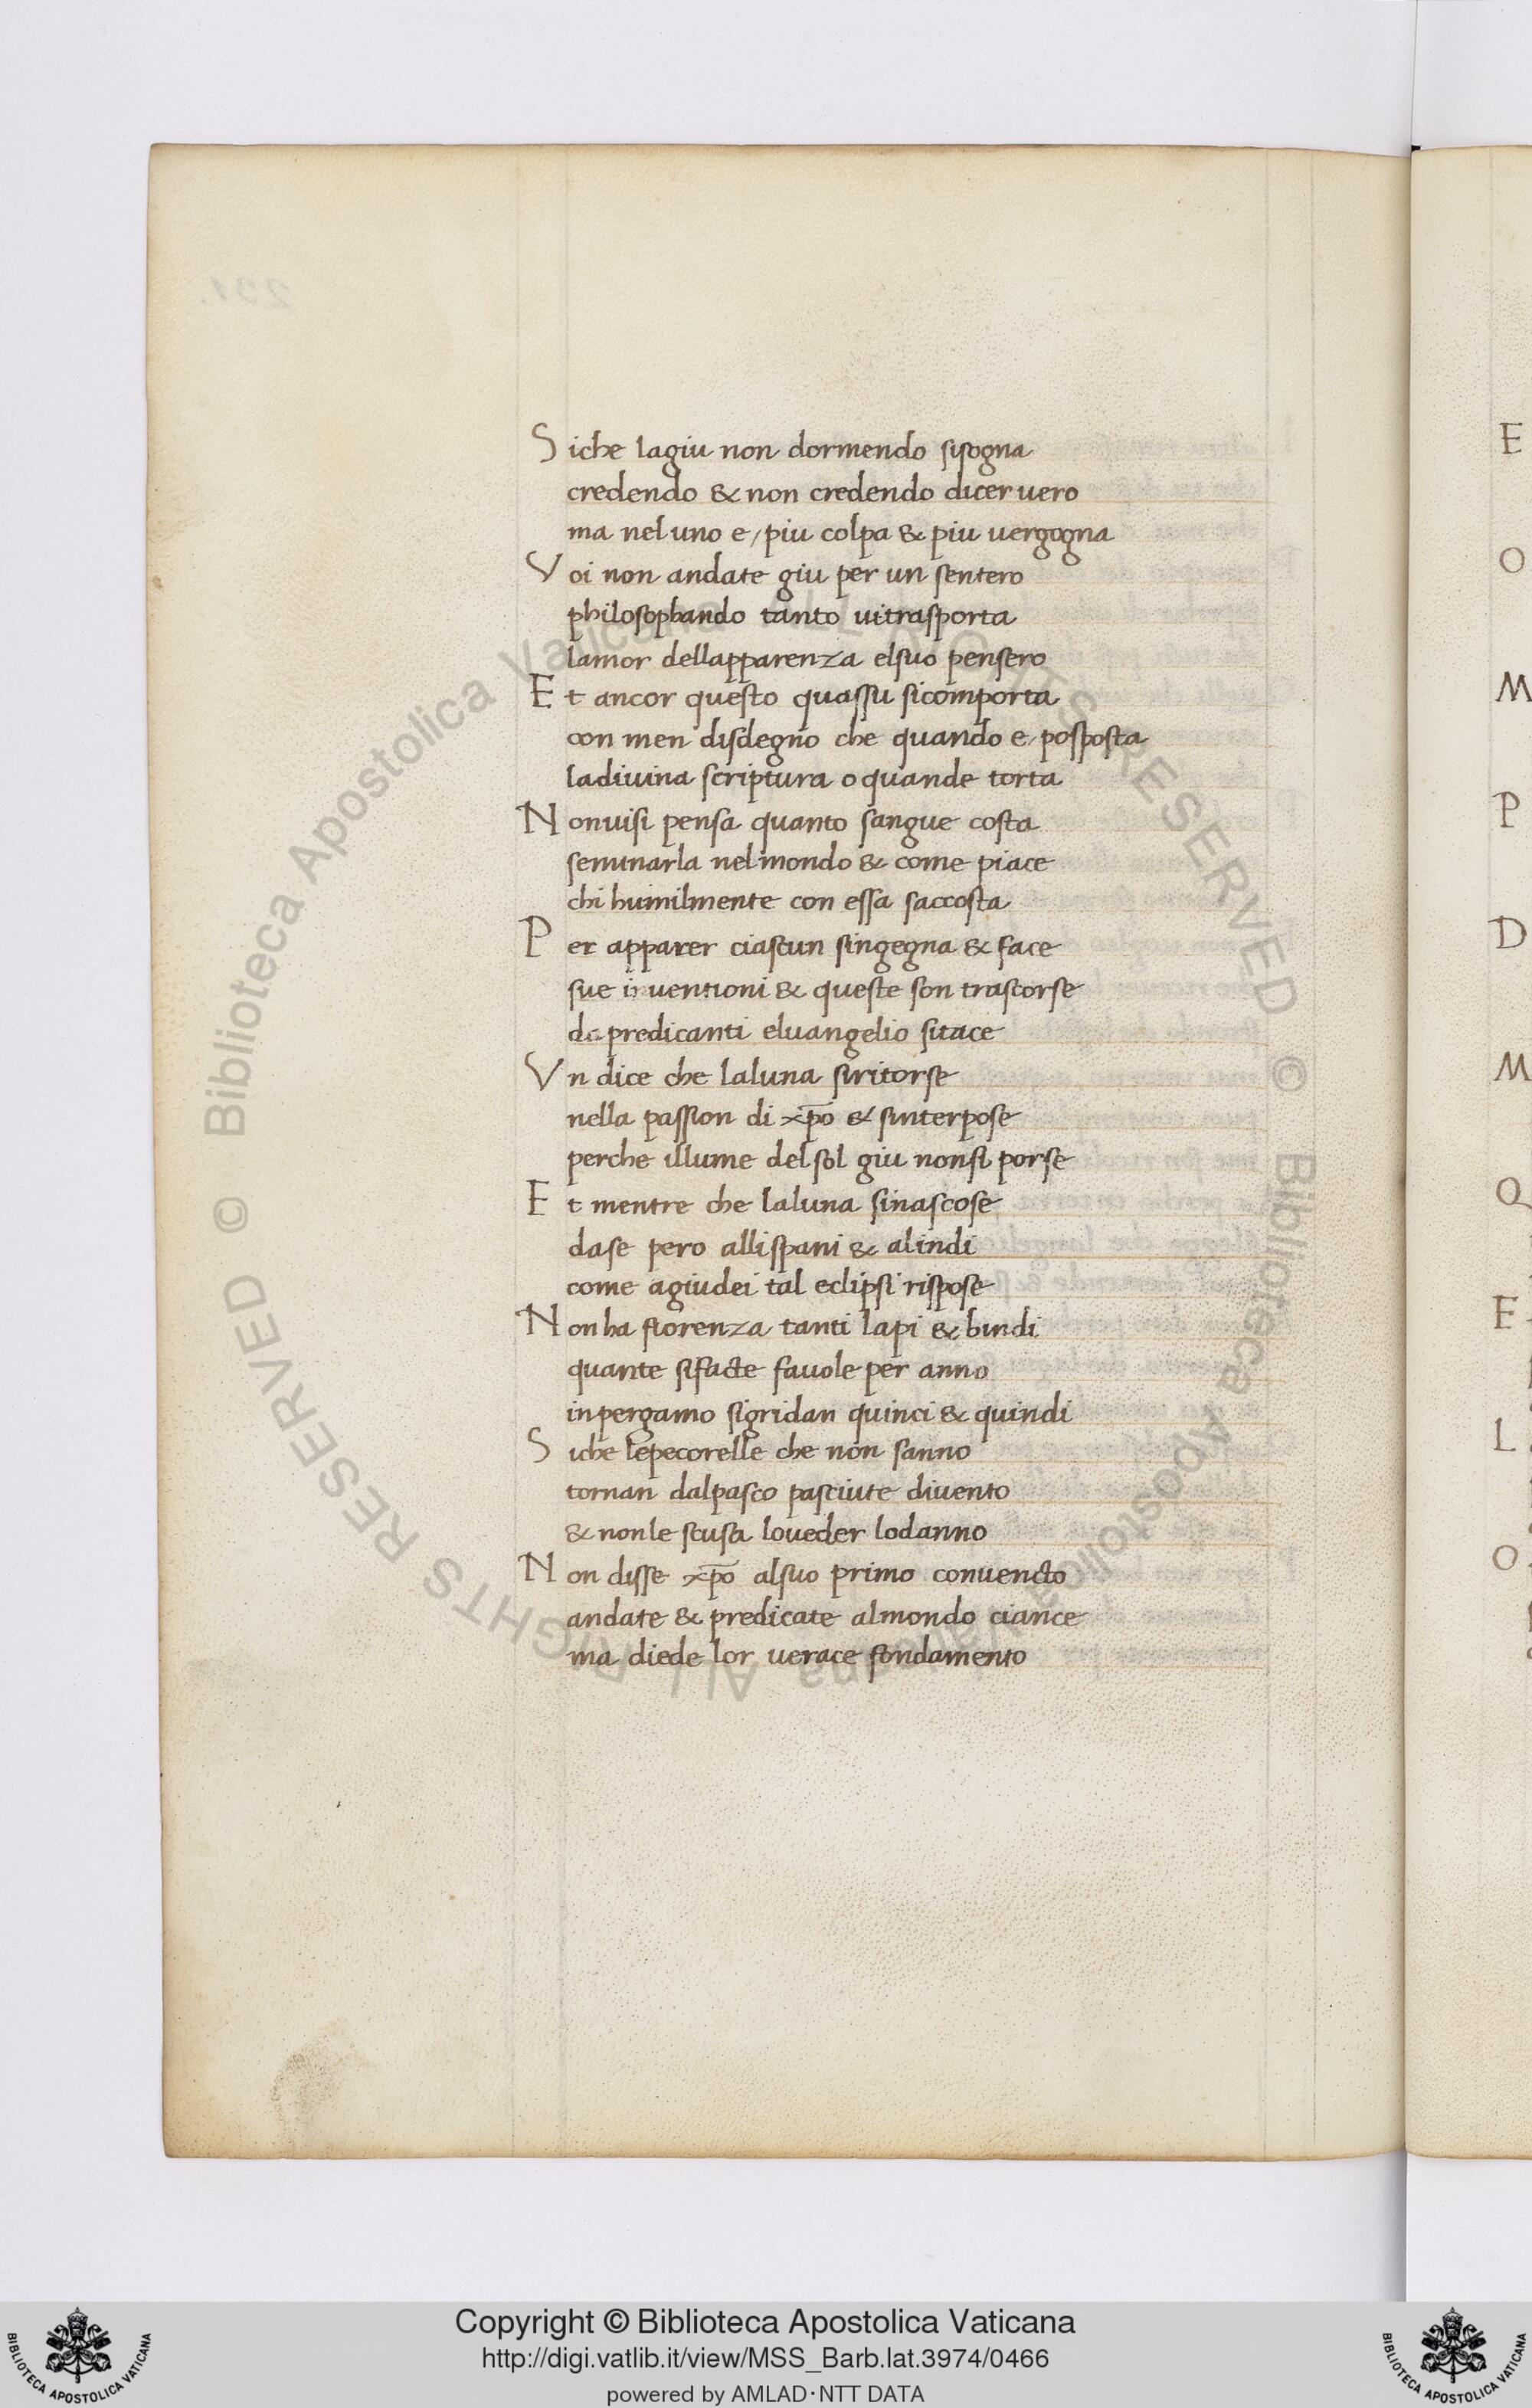 Siche lagiu non dormendo sisogna
credendo & non credendo dicer uero
ma nel uno e/piu colpa & piu uergogna
Voi non andate giu per un sentero
philosophando tanto uitrasporta
lamor dellapparenza elsuo pensero
Et ancor questo quassu sicomporta
con men disdegno che quando e/posposta
ladiuina scriptura o quande torta
Nonuisi pensa quanto sangue costa
seminarla nel mondo & come piace
chi humilmente con essa saccosta
Per apparer ciascun singegna & face
sue inuentioni & queste son trascorse
da predicanti eluangelio sitace
Vn dice che laluna siritorse
nella passion di xp̄o & sinterpose
perche illume del sol giu nonsi porse
Et mentre che laluna sinascose
dase pero allispani & alindi
come agiudei tal eclipsi rispose
Non ha fiorenza tanti lapi & bindi
quante sifacte fauole per anno
inpergamo sigridan quinci & quindi
Siche lepecorelle che non sanno
tornan dalpasco pasciute diuento
& nonle scusa loueder lodanno
Non disse xp̄o alsuo primo conuencto
andate & predicate almondo ciance
ma diede lor uerace fondamento
E
O
M
P
D
M
Q
E
L
O
© Biblioteca Apostolica Vaticana ALL RIGHTS RESERVED © Biblioteca Apostolica Vaticana ALL RIGHTS RESERVED
BIBLIOTECA APOSTOLICA VATICANA
Copyright © Biblioteca Apostolica Vaticana
http://digi.vatlib.it/view/MSS_Barb.lat.3974/0466
powered by AMLAD·NTT DATA
BIBLIOTECA APOSTOLICA VATICANA